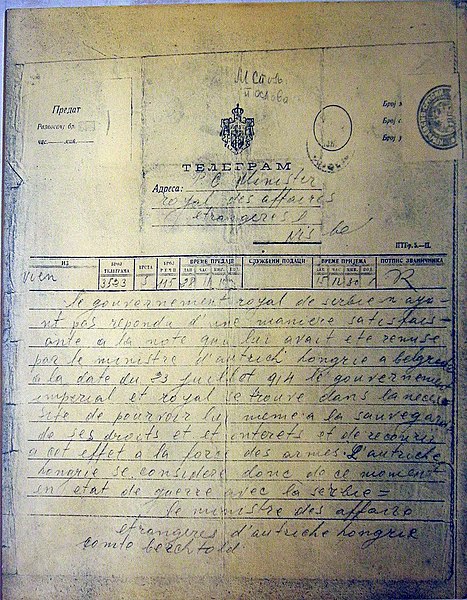 М Стол
послова
Предат
Разносачу бр.
час. мин.
Број
Број
Број
ТЕЛЕГРАМ
Адреса:
P. E. Minister
royal des affaires
etrangeres
Nis
ПТбр. 3.—П.
ИЗ БРОЈ ТЕЛЕГРАМА ВРСТА БРОЈ РЕЧИ ВРЕМЕ ПРЕДАЈЕ СЛУЖБЕНИ ПОДАЦИ ВРЕМЕ ПРИЈЕМА ПОТПИС ЗВАНИЧНИКА
ДАН ЧАС МИН. ДАН ЧАС МИН.
Vien 3523 115 28 R
le gouvernement royal de serbie n aya-
nt pas repondu d'une maniere satisfais-
ante a la note qui lui avait ete remise
par le ministre d'autriche hongrie a belgrade
a la date du 23 juillet 914 le gouvernement
imperial et royal se trouve dans la neces-
site de pourvoir lui meme a la sauvegarde
de ses droits et et interets et de recourir
a cet effet a la force des armes l autriche
hongrie se considere donc de ce moment
en etat de guerre avec la serbie =
le ministre des affaires
etrangeres d'autriche hongrie
comte berchtold